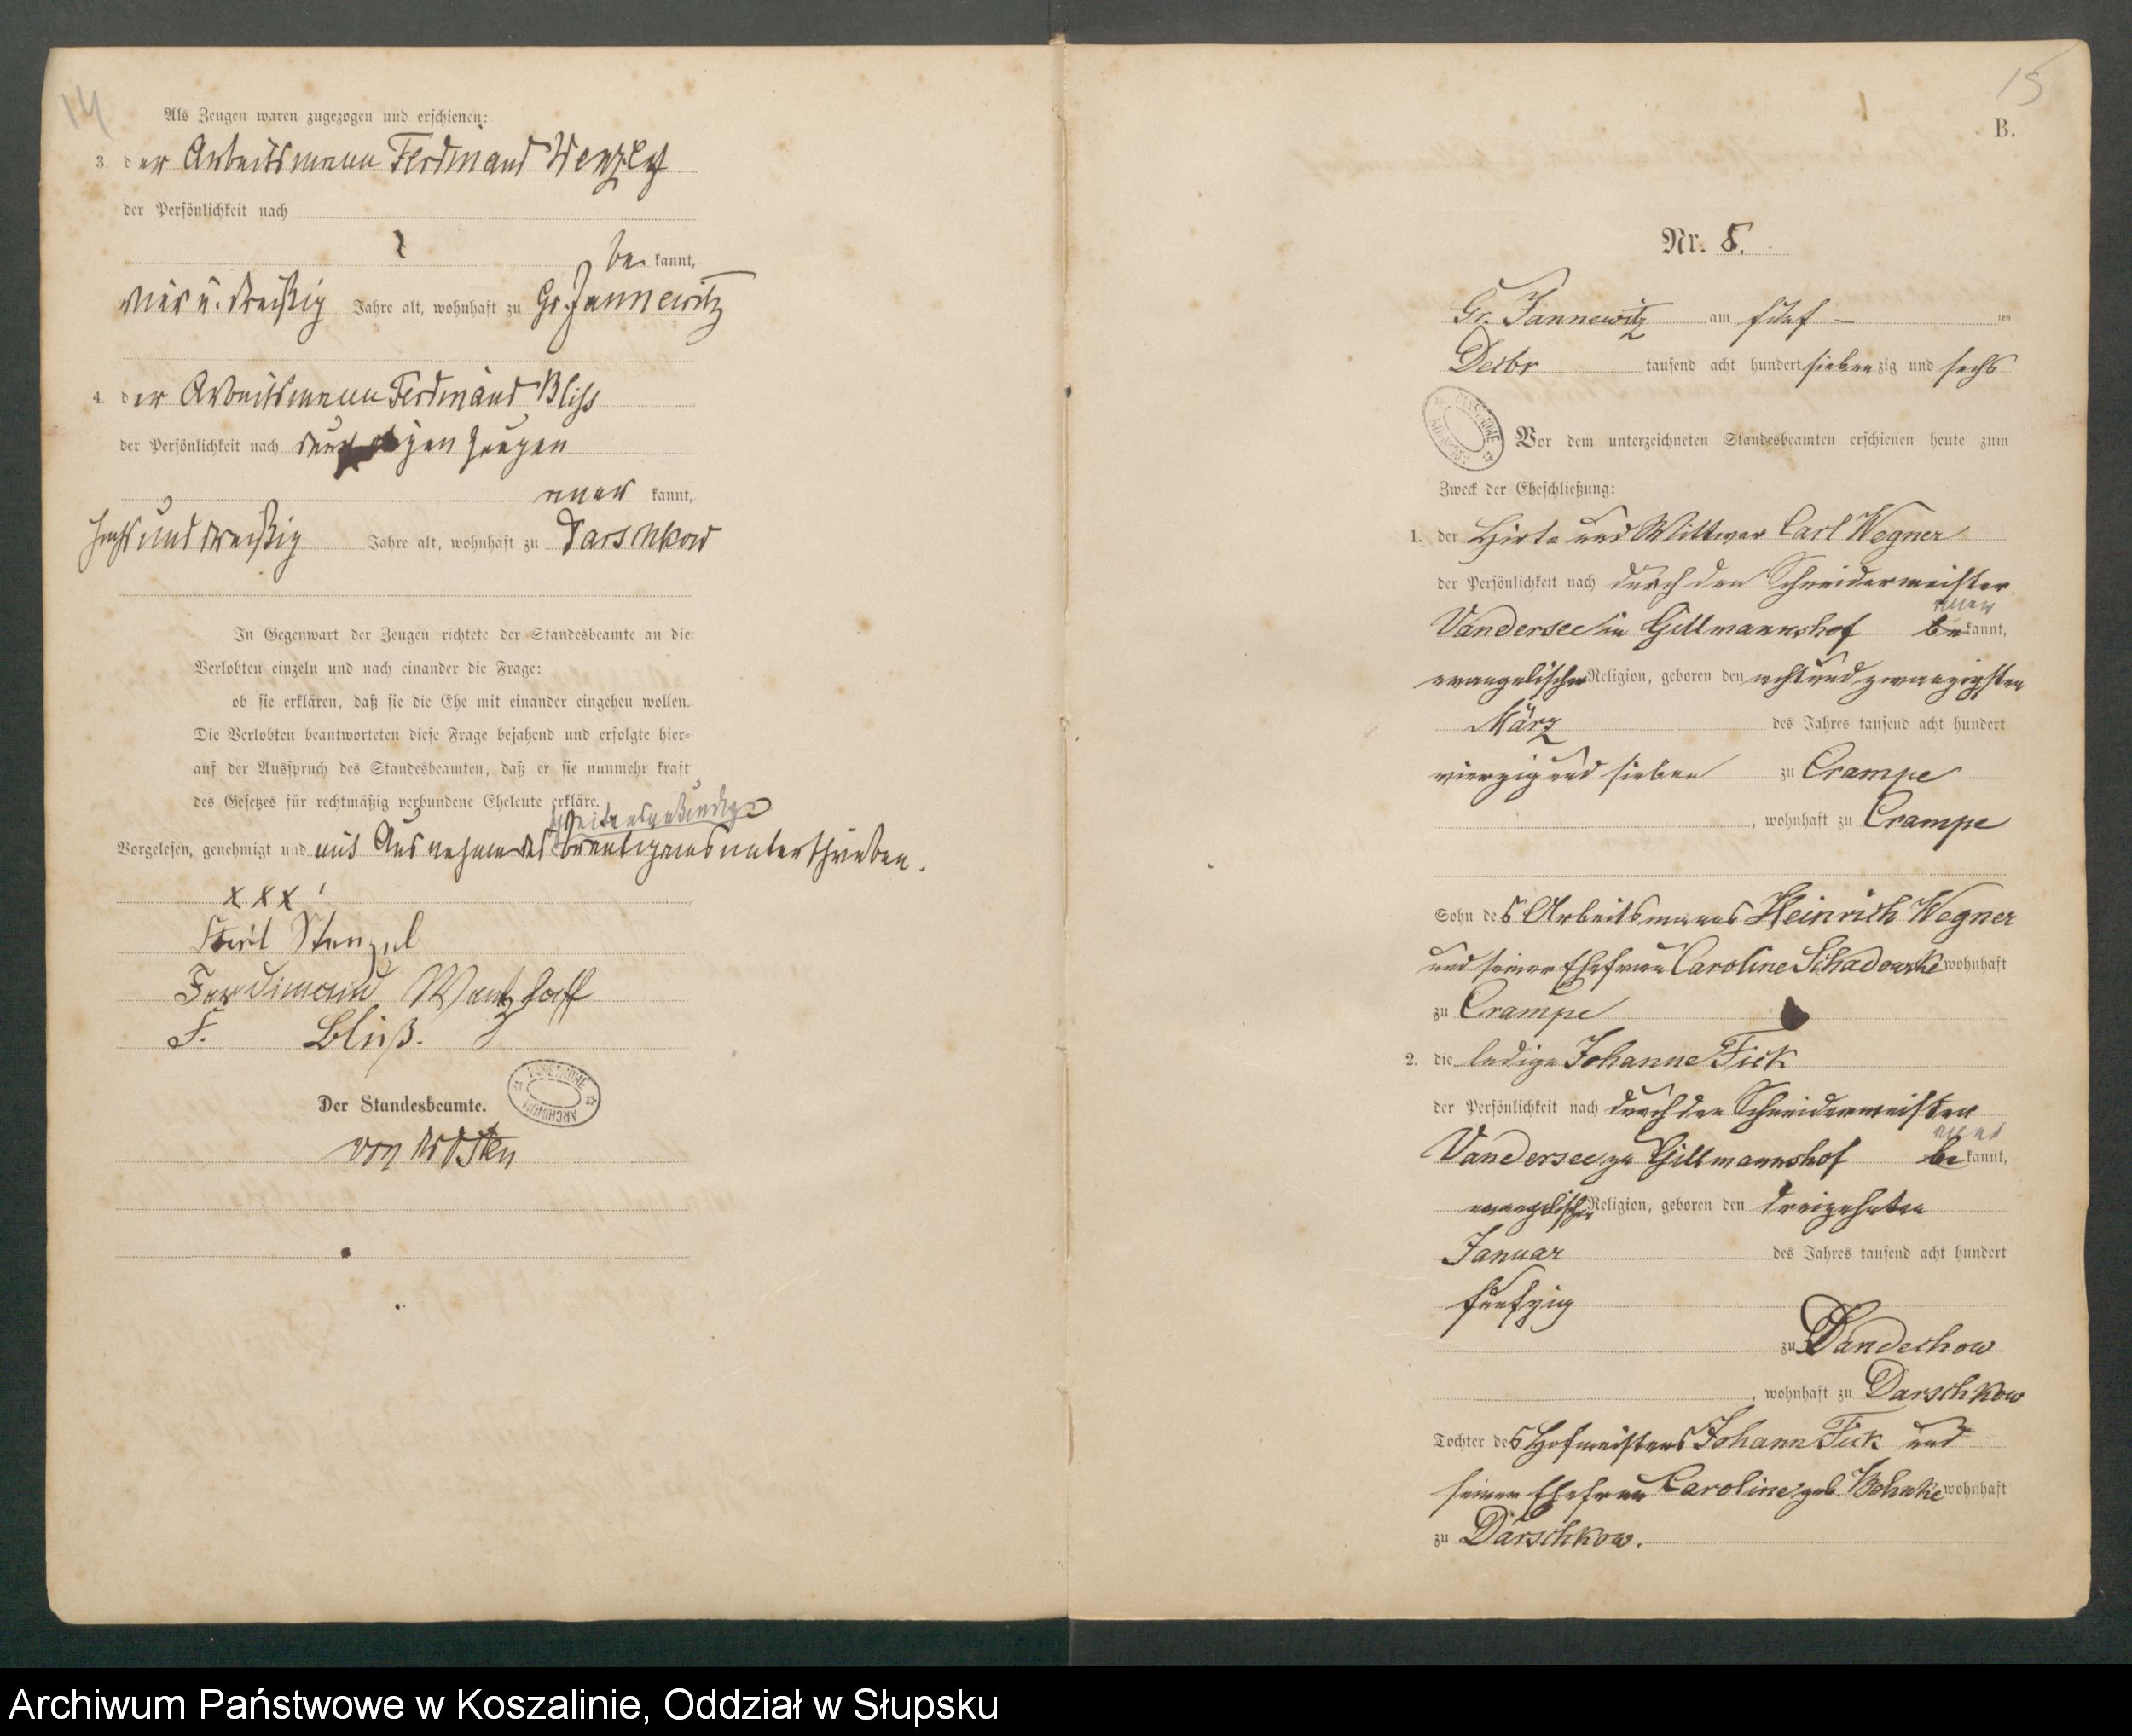 14
Als Zeugen waren zugezogen und erschienen:
3. der Arbeitsmann Ferdinand
der Persönlichkeit nach
be kannt,
vier u. dreißig Jahre alt, wohnhaft zu Gr. Jannewitz
4. der Arbeitsmann Ferdinand Bliss
der Persönlichkeit nach Zeugen
aner kannt,
sechs und dreißig Jahre alt, wohnhaft zu Darschkow
In Gegenwart der Zeugen richtete der Standesbeamte an die
Verlobten einzeln und nach einander die Frage:
ob sie erklären, daß sie die Ehe mit einander eingehen wollen.
Die Verlobten beantworteten diese Frage bejahend und erfolgte hier-
auf der Ausspruch des Standesbeamten, daß er sie nunmehr kraft
des Gesetzes für rechtmäßig verbundene Eheleute erkläre.
Vorgelesen, genehmigt und mit Ausnahme des Bräutigams unterschrieben.
x x x
Stenzel
Ferdinand
F. Bliß.
Der Standesbeamte.
PAŃSTWOWE
ARCHIWUM
15
B.
Nr. 8.
Gr. Jannewitz am fünf – ten
Decbr tausend acht hundert siebenzig und sechs
PAŃSTWOWE
Vor dem unterzeichneten Standesbeamten erschienen heute zum
Zweck der Eheschließung:
1. der Hirte und Wittwer Carl Wegner
der Persönlichkeit nach durch den Schneidermeister
aner
Vandersee in Gillmannshof be kannt,
evangelischer Religion, geboren den acht und zwanzigsten
März des Jahres tausend acht hundert
vierzig und sieben zu Crampe
, wohnhaft zu Crampe
Sohn des Arbeitsmanns Heinrich Wegner
und seiner Ehefrau Caroline Schadowske wohnhaft
zu Crampe
2. die ledige Johanne Fick
der Persönlichkeit nach durch den Schneidermeister
aner
Vandersee zu Gillmannshof be kannt,
evangelischer Religion, geboren den dreizehnten
Januar des Jahres tausend acht hundert
fünfzig
zu Dandechow
, wohnhaft zu Darschkow
Tochter des Hofmeisters Johann Fick und
seiner Ehefrau Caroline geb. Wohnke wohnhaft
zu Darschkow.
Archiwum Państwowe w Koszalinie, Oddział w Słupsku